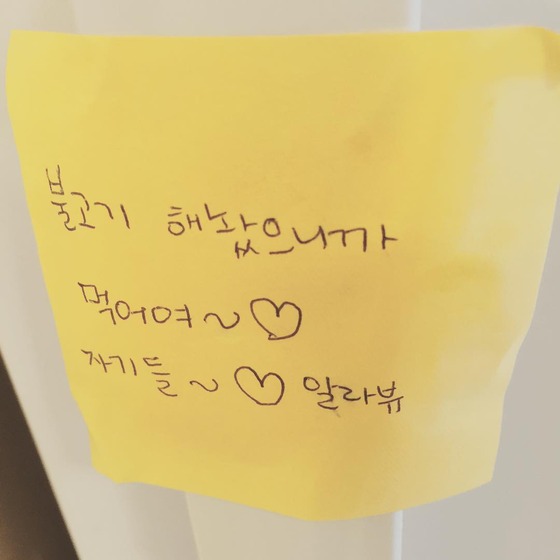 불고기 해놨으니까
먹어여~♡
자기들~♡ 알라뷰